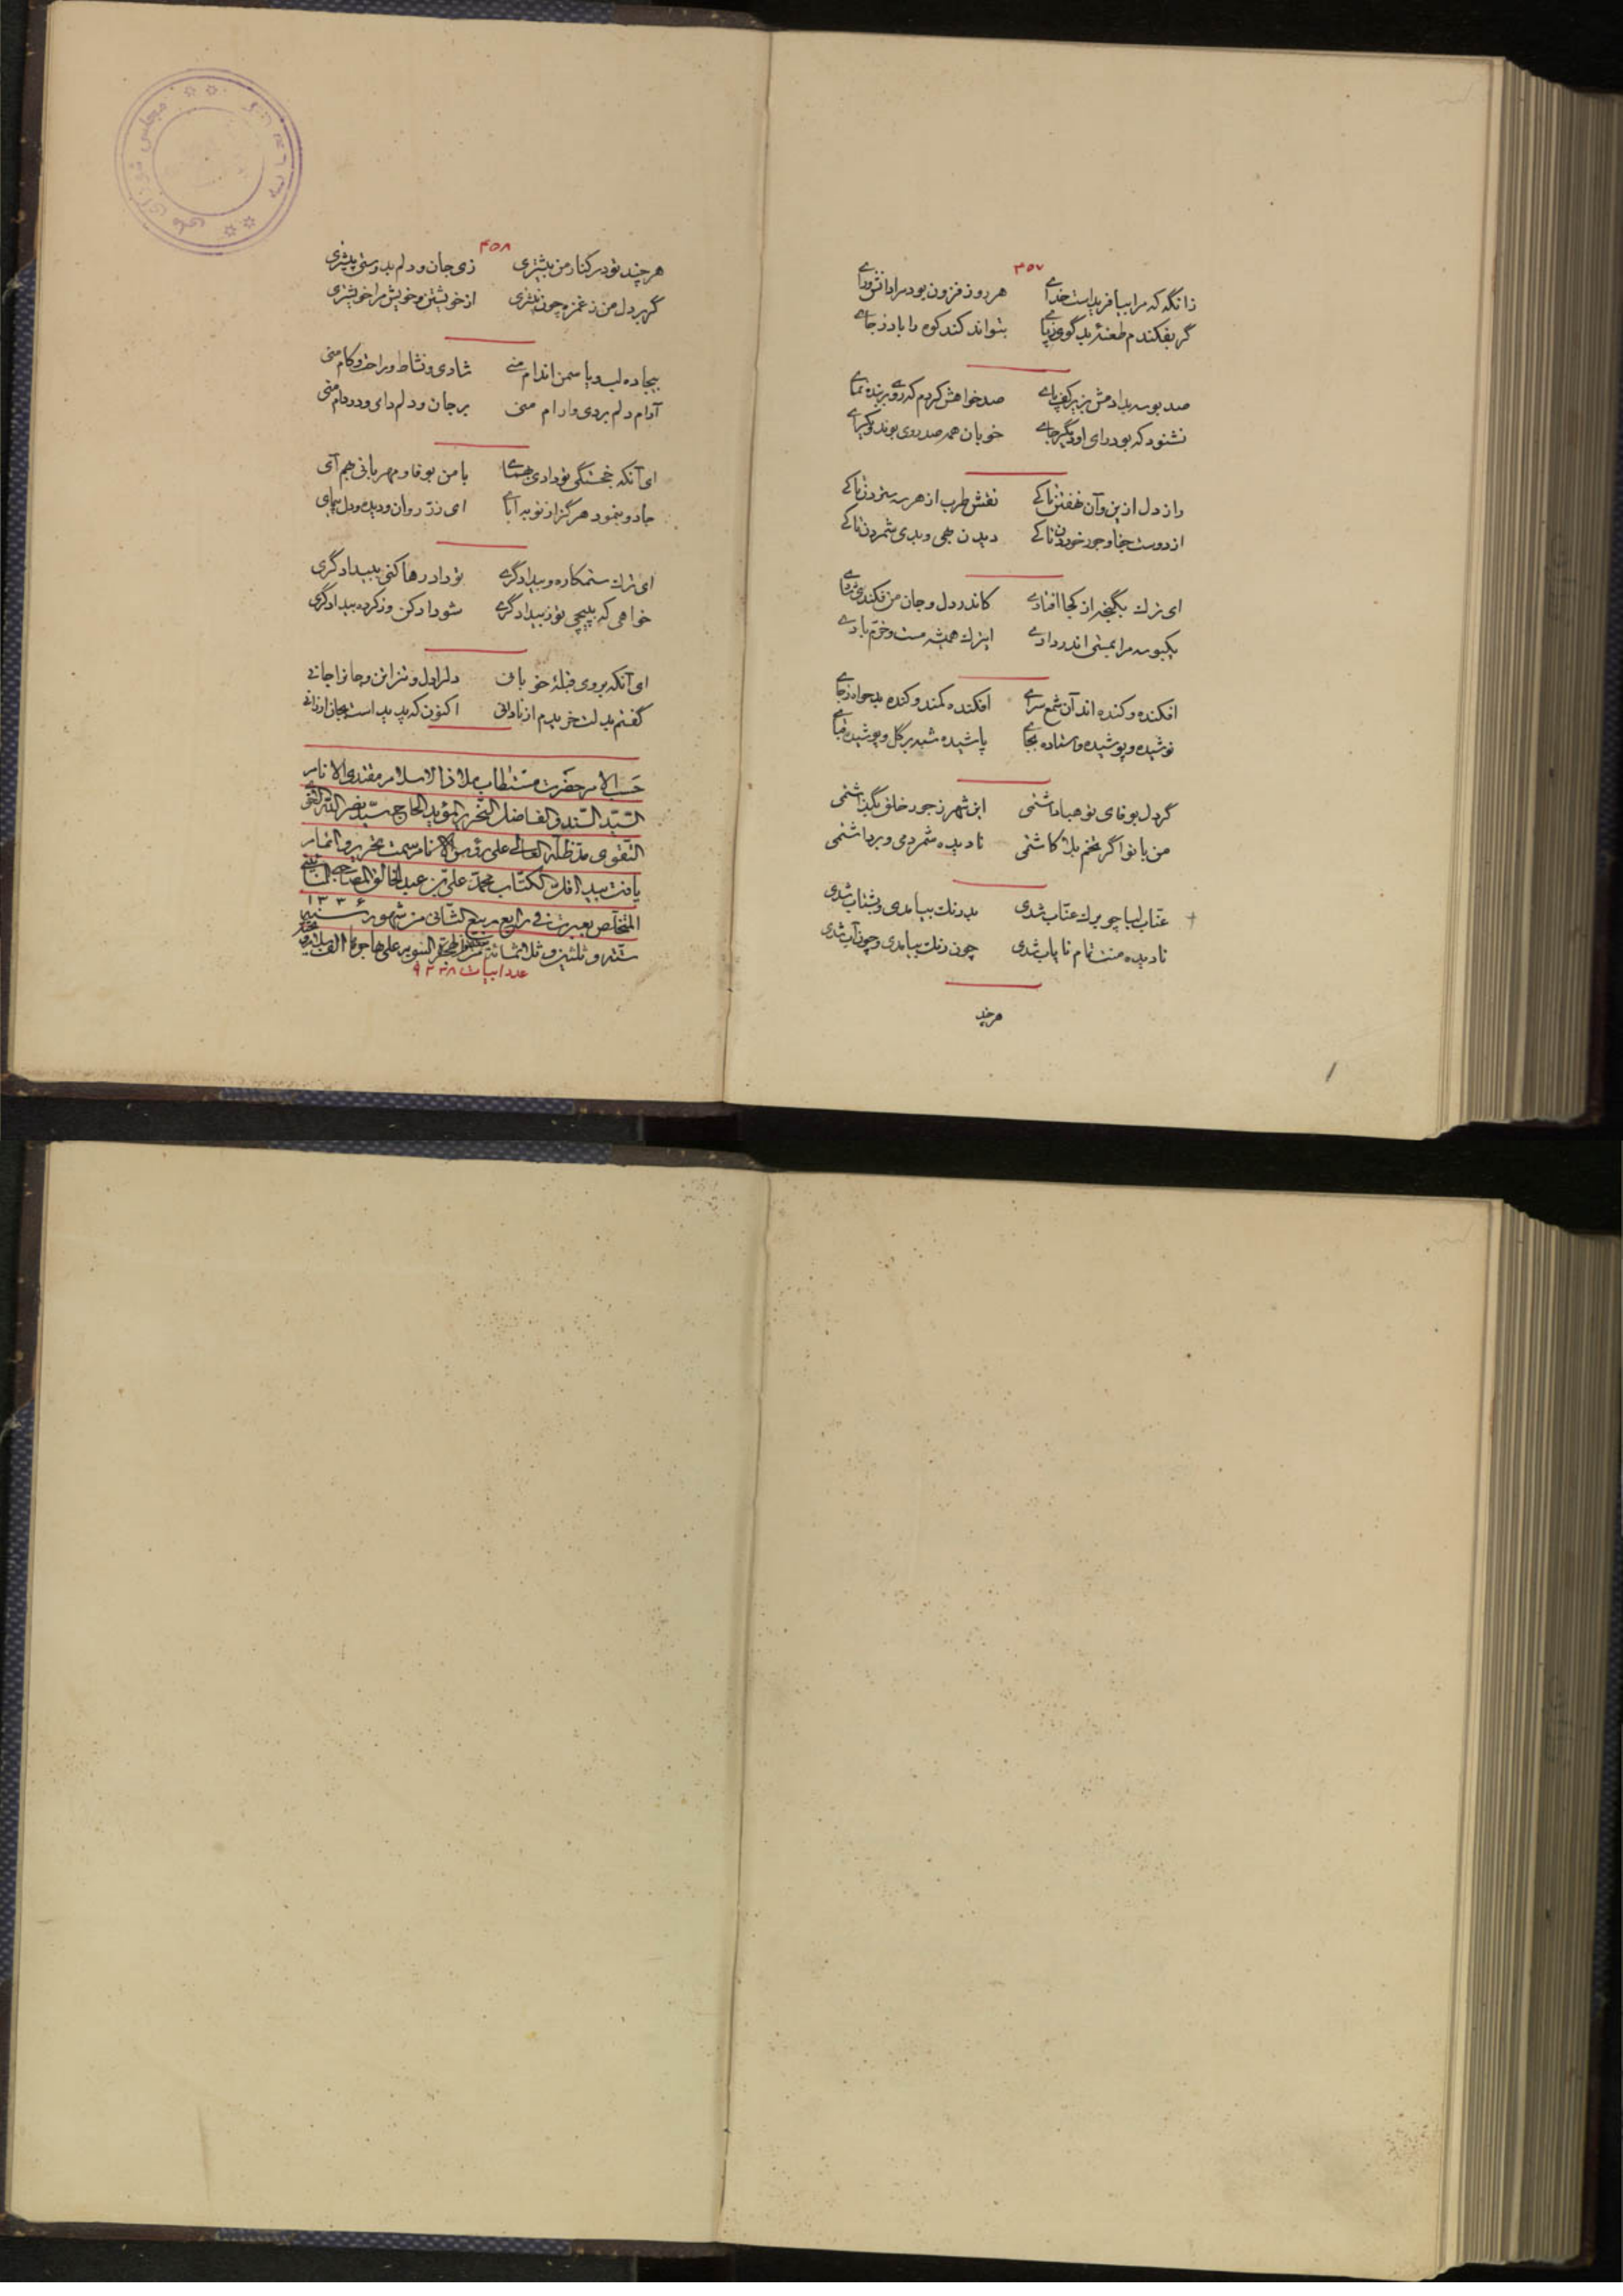 ۴۵۷
زانگه که مرا بیافریداست خدای هر روز فزون بود مرا دانش و رای
گر بفکندم طعنهٔ بدگوی ز پای بتواند کند کوه را باد ز جای
صد بوسه بدادمش بزیر کف پای صد خواهش کردم که رو بنده نمای
نشنود که بود رای او دیگر جای خوبان همه صد روی بوند و یکرای
راز دل ازین و آن نهفتن تا کی نقش طرب از هر سه ستردن تا کی
از دوست جفا و جور خوردن تا کی دیدن بهی و بدی شمردن تا کی
ای ترک بگنجه از کجا افتادی کاندر دل و جان من فکندی شادی
یکبوسه مرا بمستی اندر دادی ایترک همیشه مست و خرم بادی
افکنده و کنده اند آن شمع سرای افکنده کمند و کنده بدخواه ز جای
نوشیده و پوشیده و استاده بجای پاشیده شبه بر گل و پوشیده قبای
گر دل بوفای تو هبا داشتمی این شهر ز جور خلق بگذاشتمی
من با تو اگر تخم بلا کاشتمی نادیده شمردمی و برداشتمی
عناب لبا چو برک عناب شدی بدرنک بیامدی و بشتاب شدی
نادیده منت تمام نایاب شدی چون رنک بیامدی و چون آب شدی
هرچند
۴۵۸
هر چند تو در کنار من بیشتری زی جان و دلم بدوستی پیشتری
گر بر دل من ز غمزه چون نیشتری از خویشتن و خویش مرا خویشتری
بیجاده لب و یاسمن اندام منی شادی و نشاط و راحت و کام منی
آرام دلم بردی و ارام منی بر جان و دلم دای و در دام منی
ای آنکه خجستگی تو دادی بهمای با من بوفا و مهربانی بهم آی
جادو ننمود هرگز از تو به آیای ای زر روان و دیده و دل بپمای
ای ترک ستمکاره و بیدادگری تو داد رها کنی به بیدادگری
خواهی که نپیچی تو ز بیدادگری شو داد کن و ز کرده بیدادگری
ای آنکه بروی قبلهٔ خوبانی دلرا دل و تنرا تن و جانرا جانی
گفتم بدلت خریدم از نادانی اکنون که پدید است بجان ارزانی
حسب الامر حضرت مستطاب ملاذ الاسلام مقتدی الانام
السید السند و الفاضل النحریر المؤید الحاج سید نصر الله التقی
التقوی مد ظله العالی علی رؤس الانام سمت تحریر و اتمام
یافت بید اقل الکتاب محمد علی بن عبد الخالق المصاحبی النائینی
المتخلص بعبرت فی رابع ربیع الثانی من شهور سنه ۱۳۳۶
ستة و ثلثین و ثلاثمائة
عدد ابیات ۹۳۳۸
مجلس شورای ملی